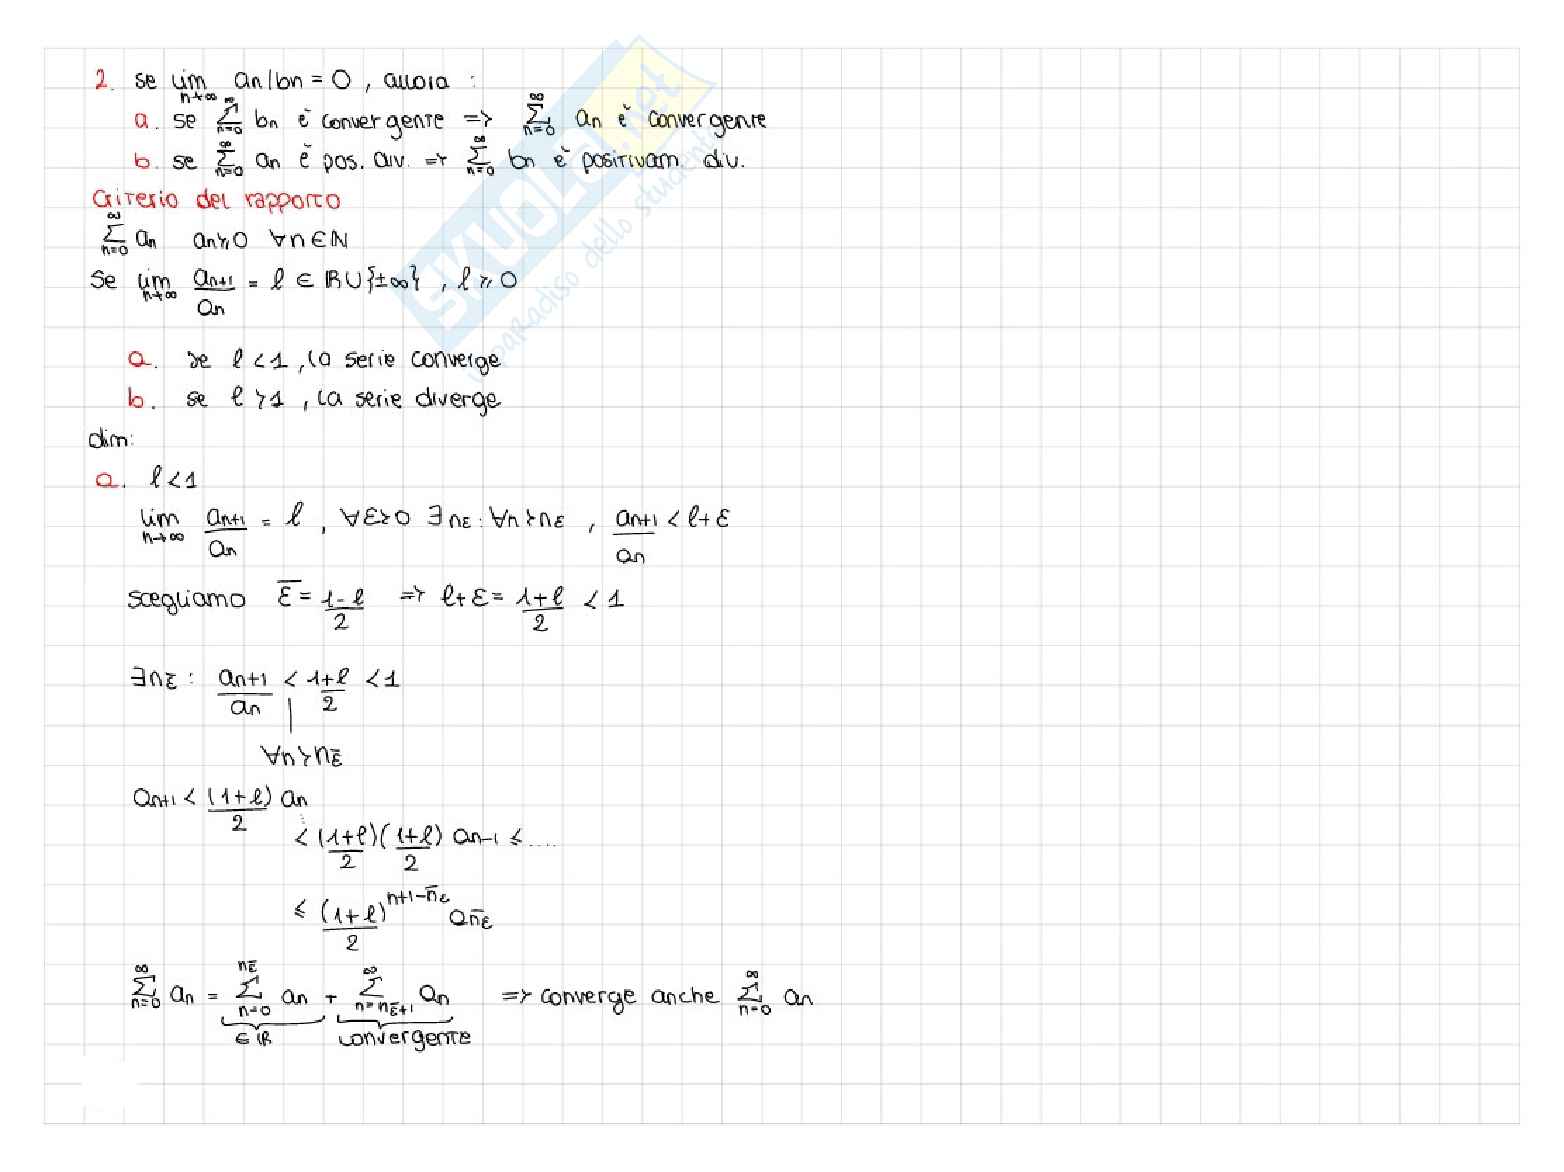 2. se lim n→∞ an/bn = 0 , allora :
a. se ∑ n=0 ∞ bn è convergente => ∑ n=0 ∞ an è convergente
b. se ∑ n=0 ∞ an è pos. div. => ∑ n=0 ∞ bn è positivam. div.
Criterio del rapporto
∑ n=0 ∞ an an ≥ 0 ∀n ∈ ℕ
Se lim n→∞ an+1/an = ℓ ∈ ℝ ∪ {±∞} , ℓ ≥ 0
a. se ℓ < 1 , la serie converge
b. se ℓ > 1 , la serie diverge
dim:
a. ℓ < 1
lim n→∞ an+1/an = ℓ , ∀ε>0 ∃ nε : ∀n > nε , an+1/an < ℓ + ε
scegliamo ε̅ = 1-ℓ/2 => ℓ + ε = 1+ℓ/2 < 1
∃ nε̅ : an+1/an < 1+ℓ/2 < 1
∀n > nε̅
an+1 < (1+ℓ)/2 an
< (1+ℓ)/2 (1+ℓ)/2 an-1 ≤ ....
≤ (1+ℓ)/2 ^ n+1-n̅ε an̅ε
∑ n=0 ∞ an = ∑ n=0 nε̅ an + ∑ n=nε̅+1 ∞ an => converge anche ∑ n=0 ∞ an
∈ ℝ convergente
SKUOLA.net
il paradiso dello studente